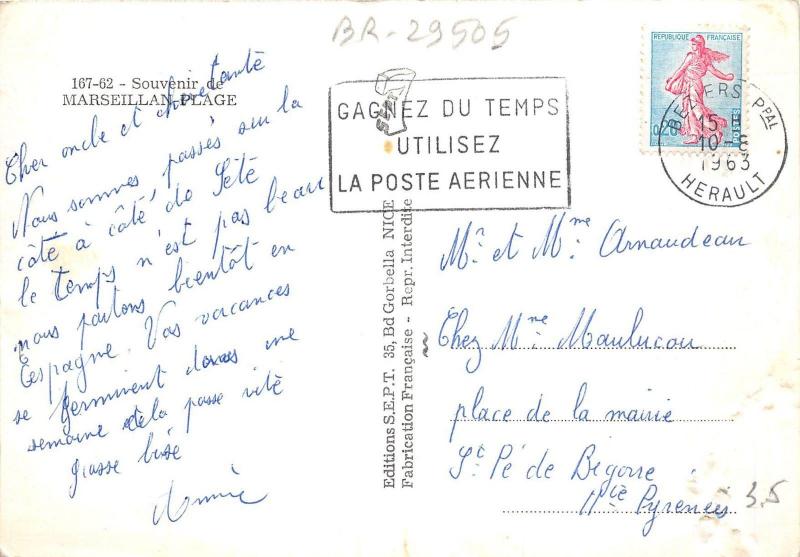 BR-29505
167-62 - Souvenir de
MARSEILLAN-PLAGE
Cher oncle et chère tante
Nous sommes, passés sur la
côte à côté de Sète
le temps n'est pas beau
nous partons bientôt en
Espagne. Vos vacances
se terminent dans une
semaine et cela passe vite
grosse bise
Annie
Editions S.E.P.T. 35, Bd Gorbella NICE
Fabrication Française - Repr. Interdite
SEPT
GAGNEZ DU TEMPS
UTILISEZ
LA POSTE AERIENNE
REPUBLIQUE FRANÇAISE
0,20
POSTES
BEZIERS PPAL
15 H
10-8
1963
HERAULT
Mr et Mme Arnaudeau
Chez Mme Maulucou
place de la mairie
St Pé de Bigorre
Htes Pyrenees
3.5